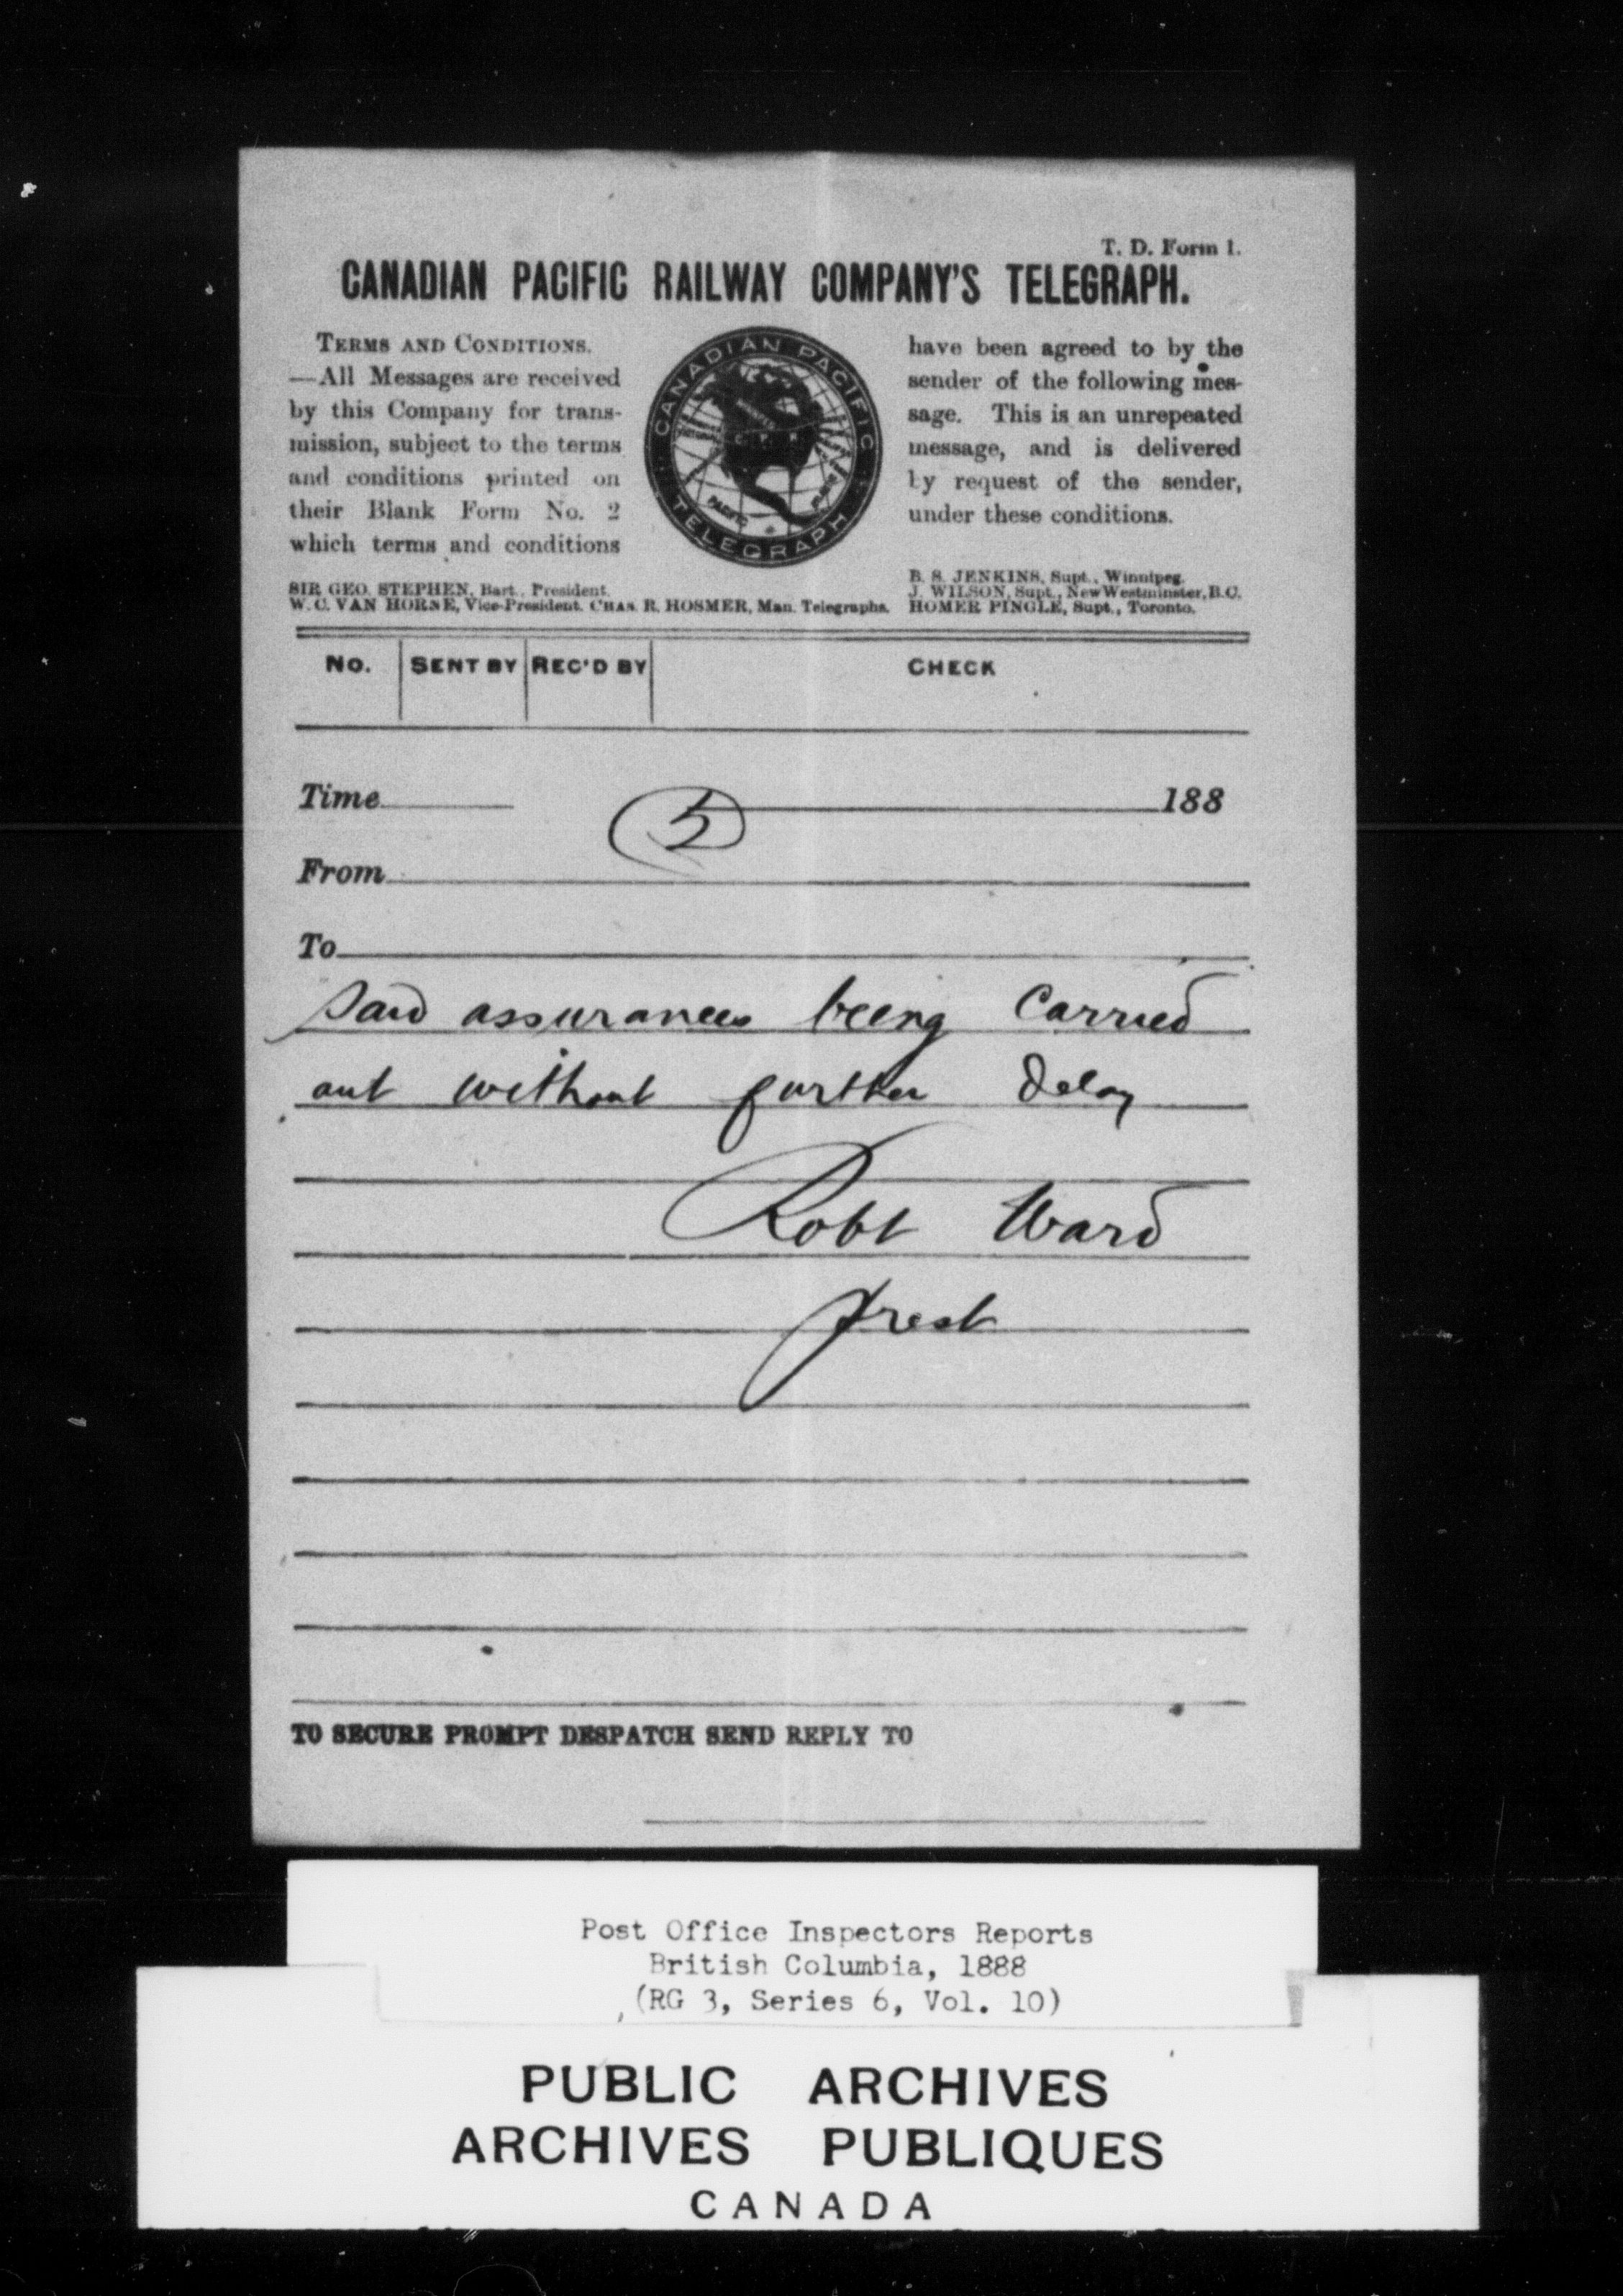 T. D. Form 1.
CANADIAN PACIFIC RAILWAY COMPANY'S TELEGRAPH.
TERMS AND CONDITIONS.
—All Messages are received
by this Company for trans-
mission, subject to the terms
and conditions printed on
their Blank Form No. 2
which terms and conditions
CANADIAN PACIFIC
TELEGRAPH
have been agreed to by the
sender of the following mes-
sage. This is an unrepeated
message, and is delivered
by request of the sender,
under these conditions.
SIR GEO. STEPHEN, Bart., President.
W. C. VAN HORNE, Vice-President. CHAS. R. HOSMER, Man. Telegraphs.
B. S. JENKINS, Supt., Winnipeg.
J. WILSON, Supt., New Westminster, B.C.
HOMER PINGLE, Supt., Toronto.
No. SENT BY REC'D BY CHECK
Time 188
5
From
To
Said assurances being Carried
out without further delay
Robt Ward
Prest
TO SECURE PROMPT DESPATCH SEND REPLY TO
Post Office Inspectors Reports
British Columbia, 1888
(RG 3, Series 6, Vol. 10)
PUBLIC ARCHIVES
ARCHIVES PUBLIQUES
CANADA